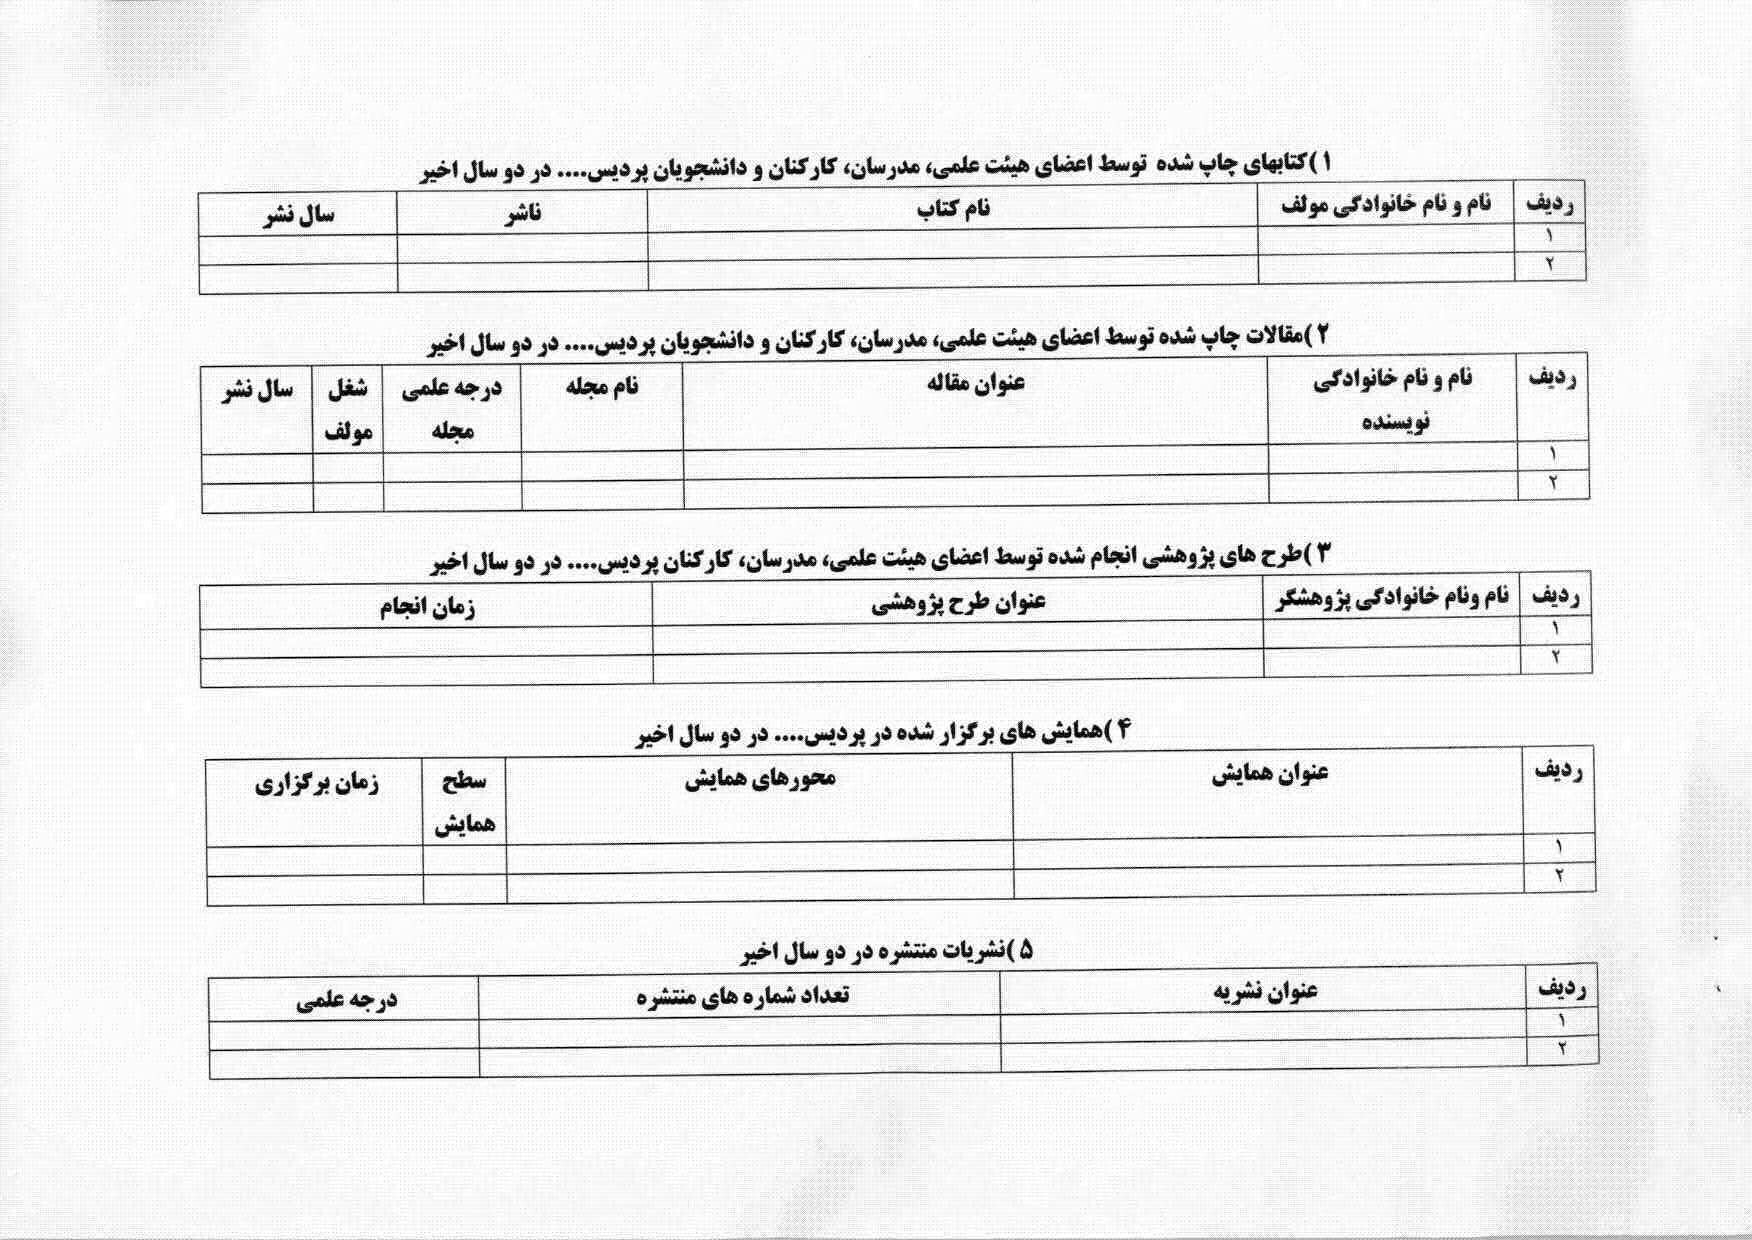 ۱)کتابهای چاپ شده توسط اعضای هیئت علمی، مدرسان، کارکنان و دانشجویان پردیس.... در دو سال اخیر
ردیف نام و نام خانوادگی مولف نام کتاب ناشر سال نشر
۱
۲
۲)مقالات چاپ شده توسط اعضای هیئت علمی، مدرسان، کارکنان و دانشجویان پردیس.... در دو سال اخیر
ردیف نام و نام خانوادگی عنوان مقاله نام مجله درجه علمی شغل سال نشر
نویسنده مجله مولف
۱
۲
۳)طرح های پژوهشی انجام شده توسط اعضای هیئت علمی، مدرسان، کارکنان پردیس.... در دو سال اخیر
ردیف نام ونام خانوادگی پژوهشگر عنوان طرح پژوهشی زمان انجام
۱
۲
۴)همایش های برگزار شده در پردیس.... در دو سال اخیر
ردیف عنوان همایش محورهای همایش سطح زمان برگزاری
همایش
۱
۲
۵)نشریات منتشره در دو سال اخیر
ردیف عنوان نشریه تعداد شماره های منتشره درجه علمی
۱
۲